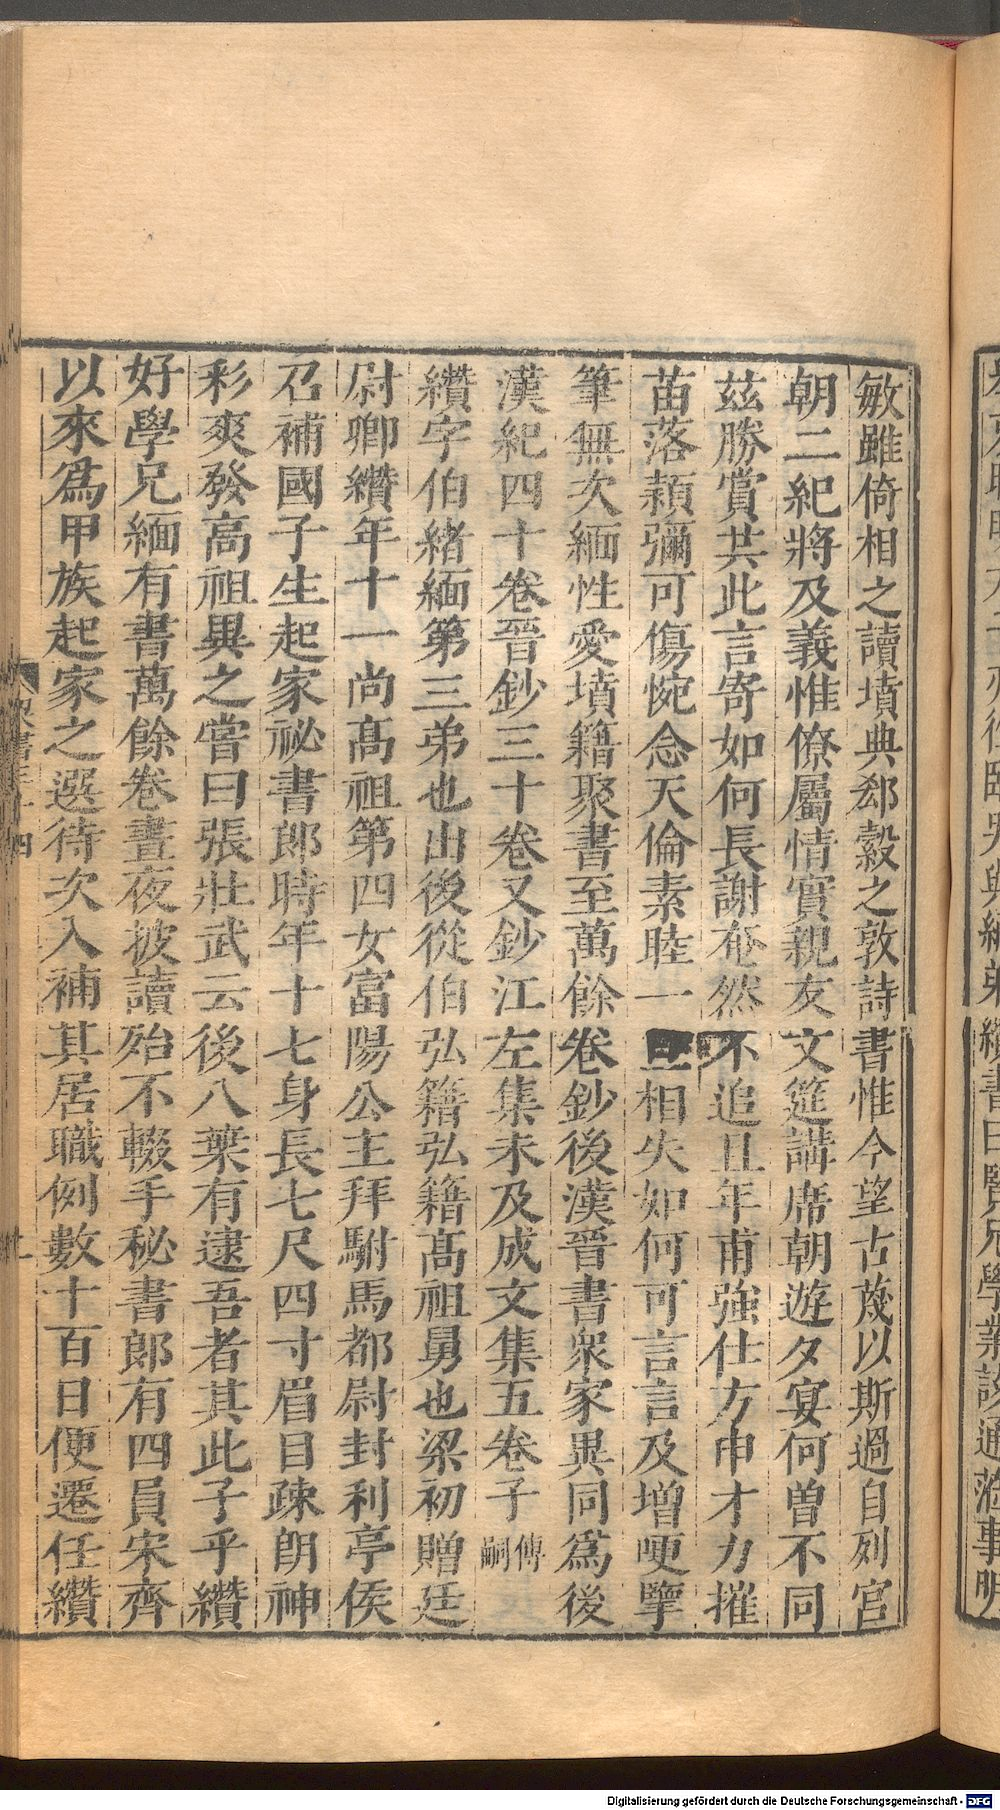 敏雖倚相之讀墳典郄縠之敦詩書惟今望古蔑以斯過自列宮
朝二紀將及義惟僚屬情實親友文筵講席朝遊夕宴何曽不同
茲勝賞共此言寄如何長謝奄然不追且年甫強仕方申才力摧
苗落頴彌可傷惋念天倫素睦一旦相失如何可言言及增哽擥
筆無次緬性愛墳籍聚書至萬餘卷鈔後漢晉書衆家異同爲後
漢紀四十卷晉鈔三十卷又鈔江左集未及成文集五卷子傳嗣
纘字伯緒緬第三弟也出後從伯弘籍弘籍髙祖舅也梁初贈廷
尉卿纘年十一尚髙祖第四女富陽公主拜駙馬都尉封利亭侯
召補國子生起家祕書郎時年十七身長七尺四寸眉目疎朗神
彩爽發高祖異之嘗曰張壯武云後八葉有逮吾者其此子乎纘
好學兄緬有書萬餘卷晝夜披讀殆不輟手秘書郎有四員宋齊
以來爲甲族起家之選待次入補其居職例數十百日便遷任纘
Digitalisierung gefördert durch die Deutsche Forschungsgemeinschaft - DFG